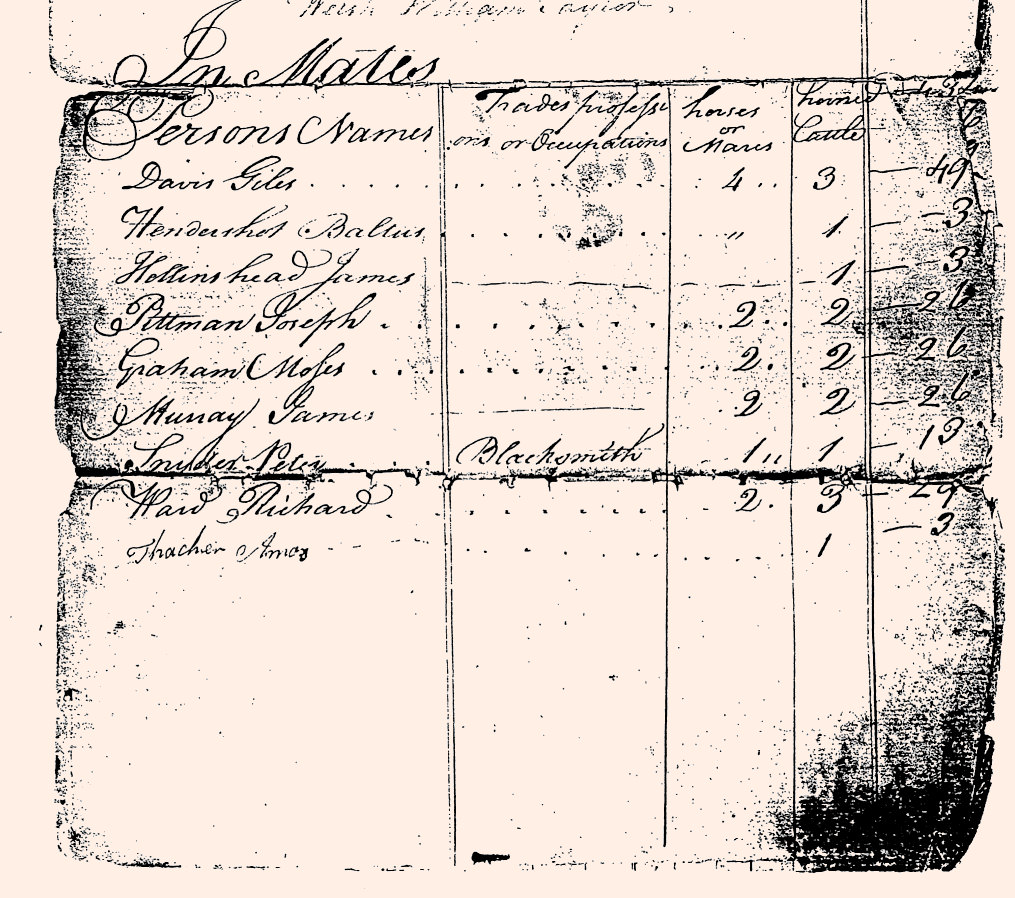 Welsh William Taylor
In Mates
Persons Names Trades profess ons or Occupations horses or Mares horned Cattle
Davis Giles 4 3 49
Hendershot Baltus " 1 3
Hollinshead James 1 3
Pittman Joseph 2 2 26
Graham Moses 2 2 26
Murray James 2 2 26
Snyder Peter Blacksmith 1 " 1 13
Ward Richard 2 3 29
Thacher Amos 1 3